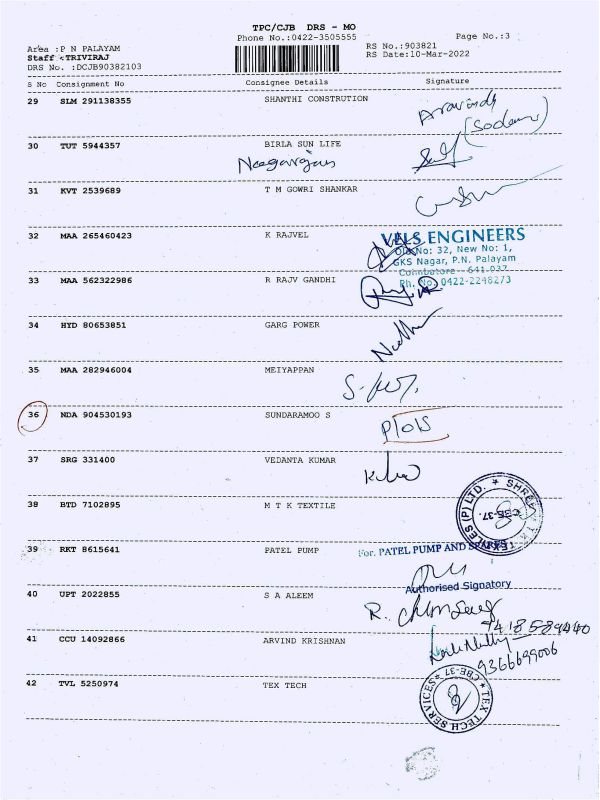 TPC/CJB DRS - MO
Phone No.:0422-3505555
Page No.:3
Area :P N PALAYAM
RS No.:903821
Staff :TRIVIRAJ
RS Date:10-Mar-2022
DRS No. :DCJB90382103
S No Consignment No Consignee Details Signature
29 SLM 291138355 SHANTHI CONSTRUTION
30 TUT 5944357 BIRLA SUN LIFE
Naagarajan
31 KVT 2539689 T M GOWRI SHANKAR
32 MAA 265460423 K RAJVEL
VELS ENGINEERS
Old No: 32, New No: 1,
GKS Nagar, P.N. Palayam
Coimbatore - 641 037
Ph. No: 0422-2248273
33 MAA 562322986 R RAJV GANDHI
34 HYD 80653851 GARG POWER
35 MAA 282946004 MEIYAPPAN
36 NDA 904530193 SUNDARAMOO S
37 SRG 331400 VEDANTA KUMAR
38 BTD 7102895 M T K TEXTILE
CBE-37.
39 RKT 8615641 PATEL PUMP
For. PATEL PUMP AND
Authorised Signatory
40 UPT 2022855 S A ALEEM
41 CCU 14092866 ARVIND KRISHNAN
9366699006
42 TVL 5250974 TEX TECH
TEX TECH SERVICES * CBE-37 *